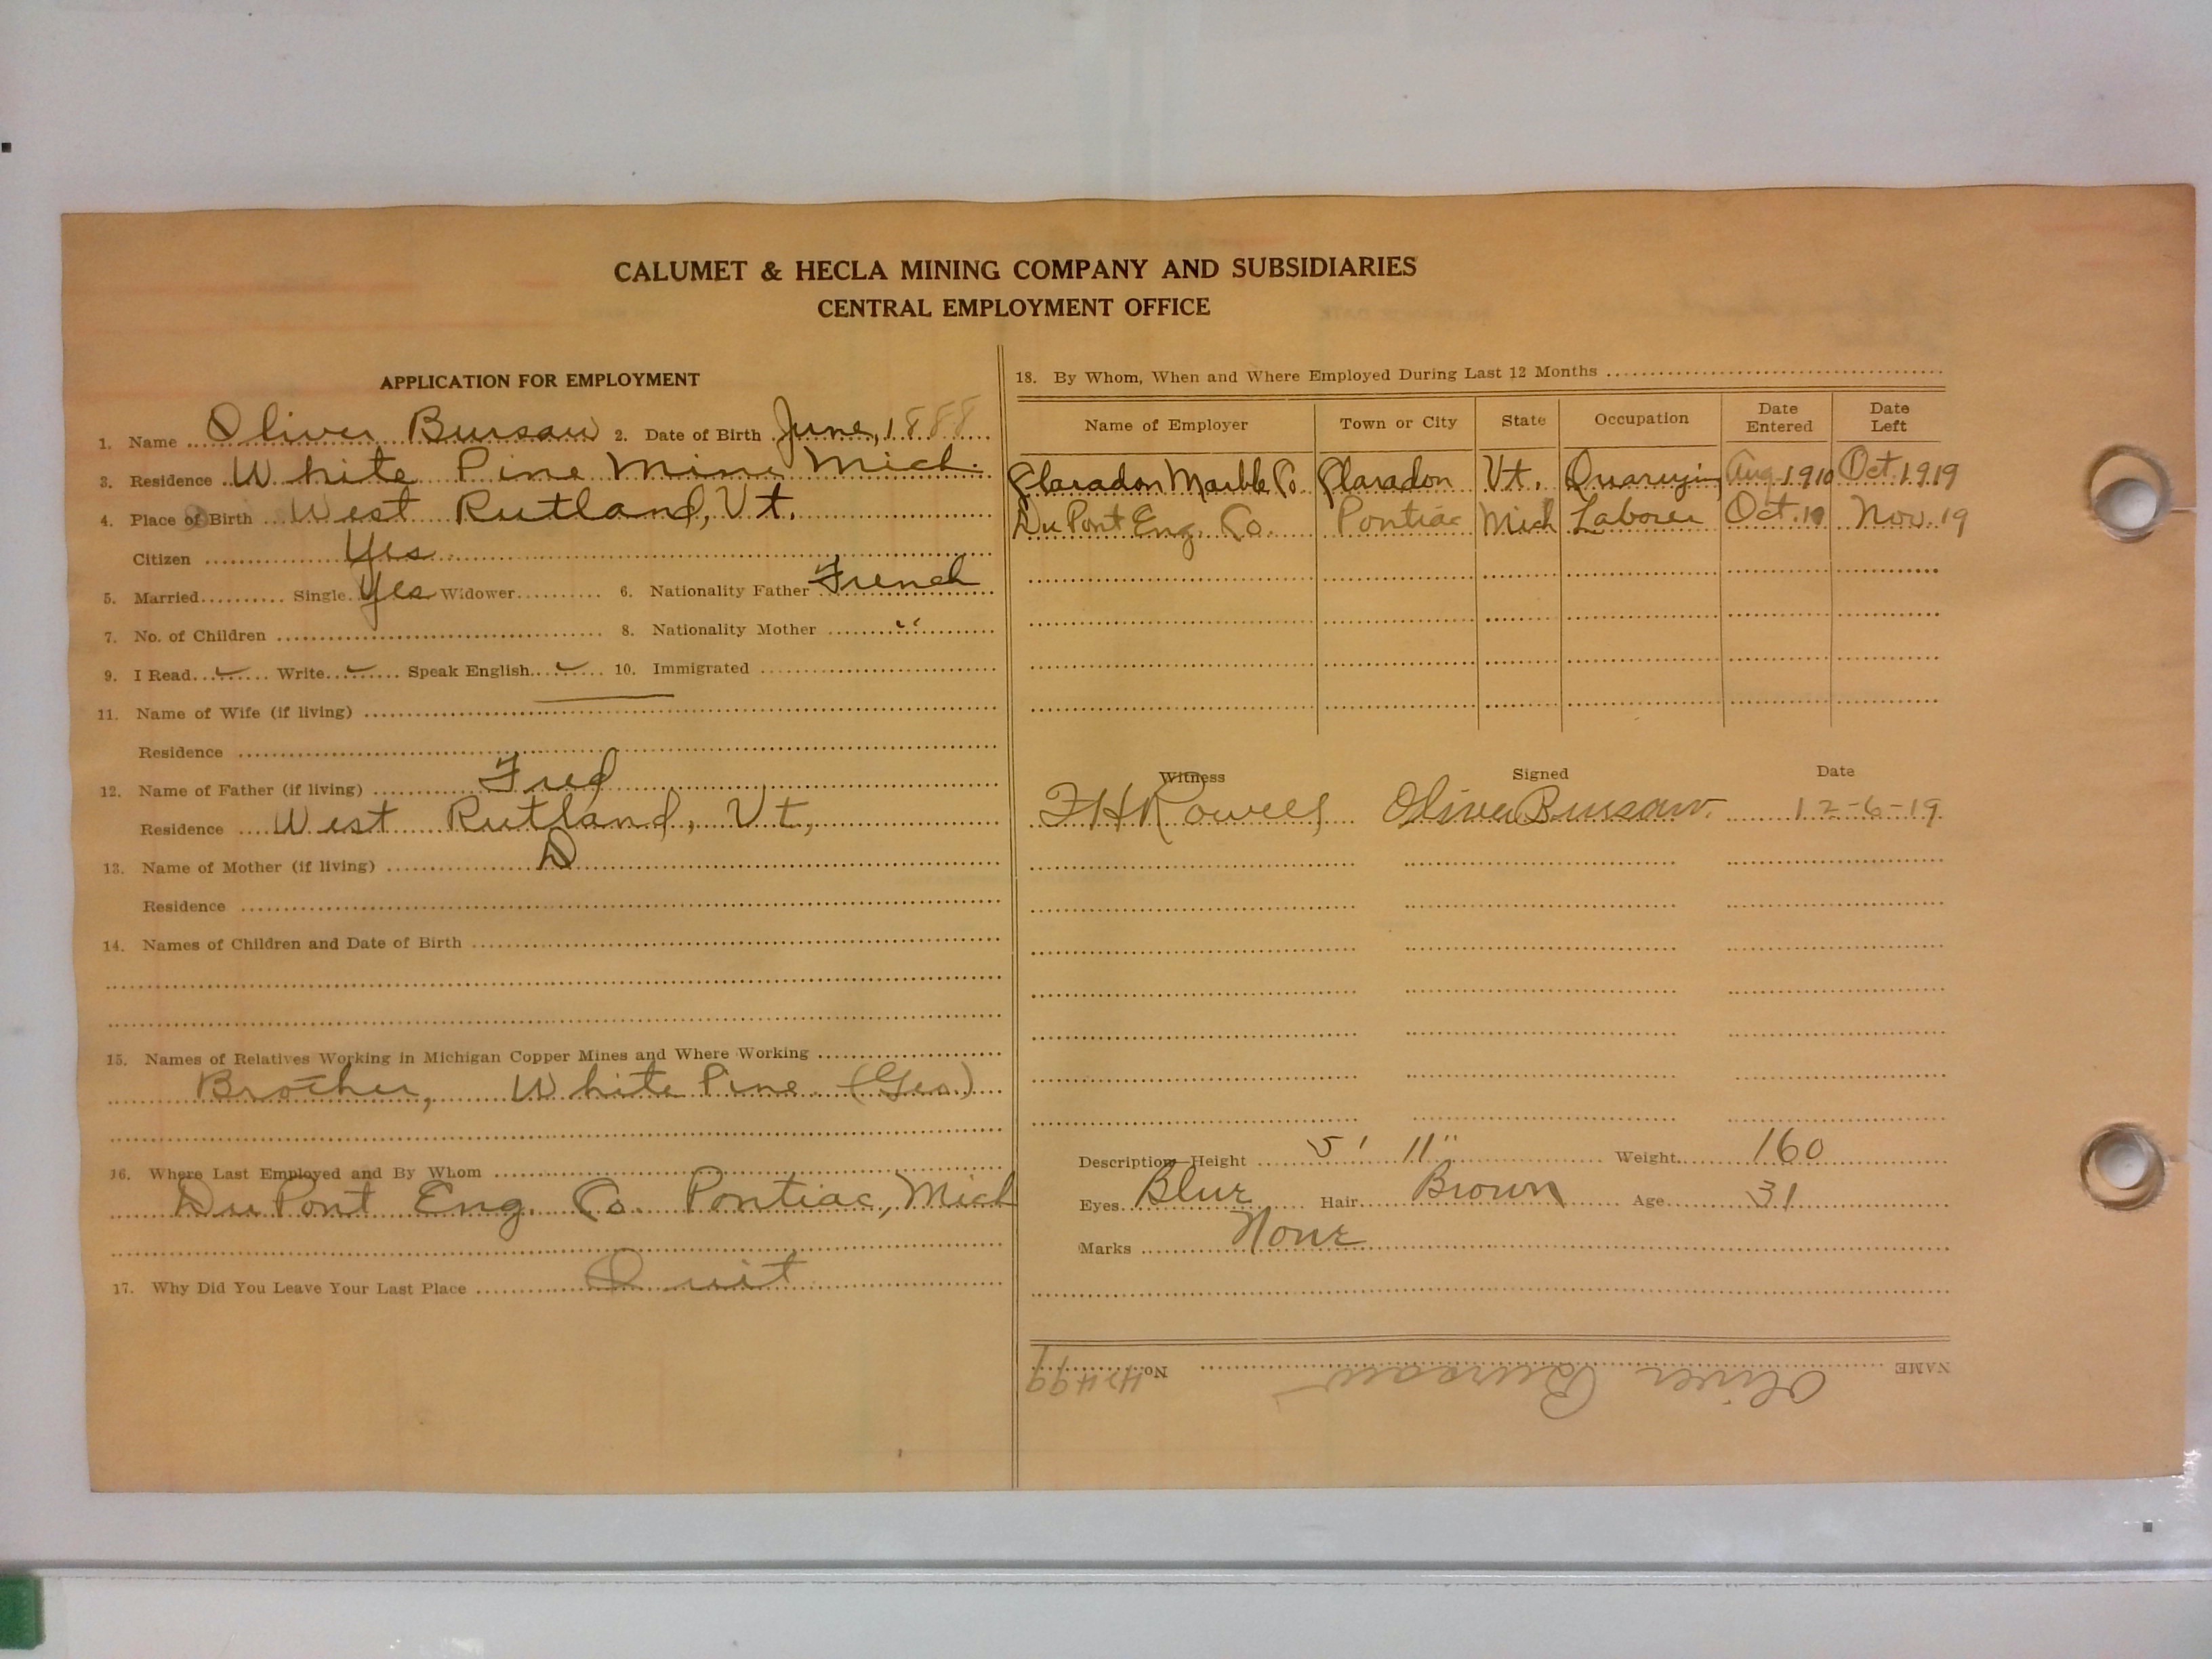 CALUMET & HECLA MINING COMPANY AND SUBSIDIARIES
CENTRAL EMPLOYMENT OFFICE
APPLICATION FOR EMPLOYMENT
1. Name Oliver Bursaw 2. Date of Birth June, 1888
3. Residence White Pine Mine Mich.
4. Place of Birth West Rutland, Vt.
Citizen Yes
5. Married Single Yes Widower 6. Nationality Father French
7. No. of Children 8. Nationality Mother "
9. I Read ✓ Write ✓ Speak English ✓ 10. Immigrated
11. Name of Wife (if living)
Residence
12. Name of Father (if living) Fred
Residence West Rutland, Vt.,
13. Name of Mother (if living) D
Residence
14. Names of Children and Date of Birth
15. Names of Relatives Working in Michigan Copper Mines and Where Working
Brother, White Pine (Geo.)
16. Where Last Employed and By Whom
Du Pont Eng. Co. Pontiac, Mich
17. Why Did You Leave Your Last Place Quit
18. By Whom, When and Where Employed During Last 12 Months
Name of Employer Town or City State Occupation Date Entered Date Left
Claradon Marble Co Claradon Vt. Quarryin Aug 1910 Oct. 1919
Du Pont Eng. Co. Pontiac Mich Laborer Oct. 19 Nov. 19
Witness Signed Date
F H Rowell Oliver Bursaw. 12-6-19
Description—Height 5' 11" Weight 160
Eyes Blue Hair Brown Age 31
Marks None
NAME Oliver Bursaw No.